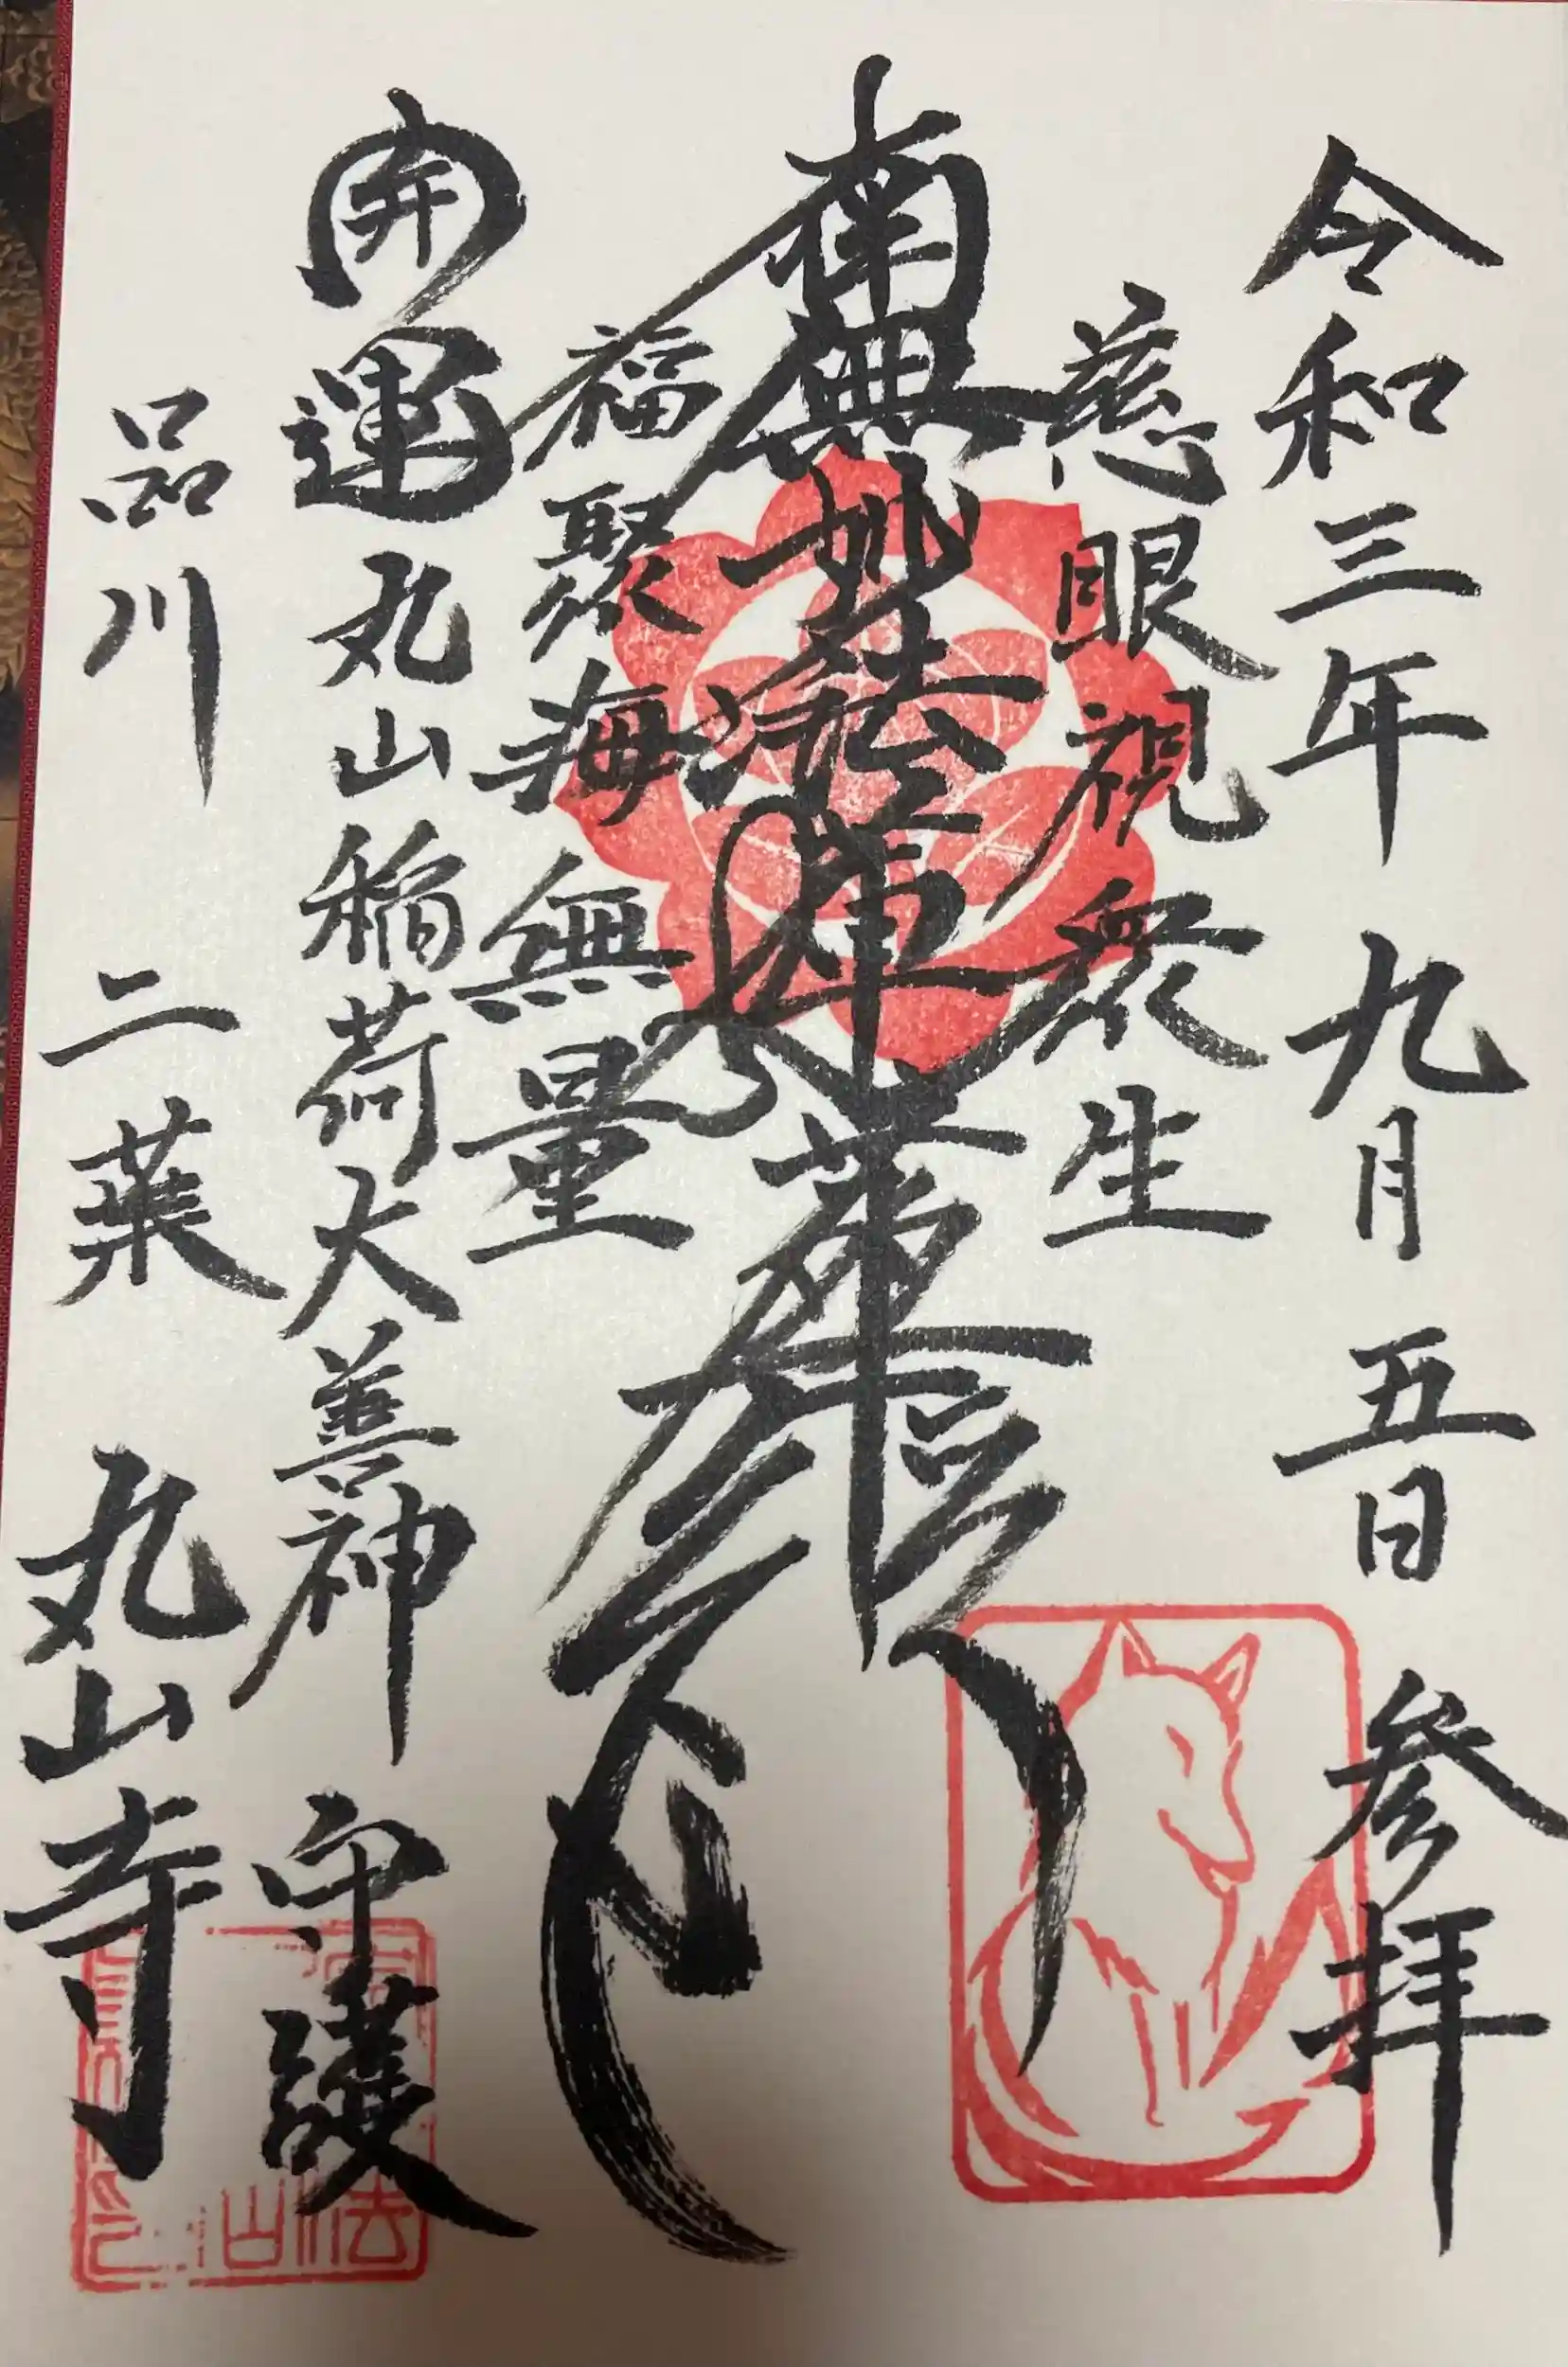 令和三年 九月 五日 参拝
慈眼視衆生
南無妙法蓮華経
福聚海無量
開運 丸山稲荷大善神 守護
品川 二葉 丸山寺